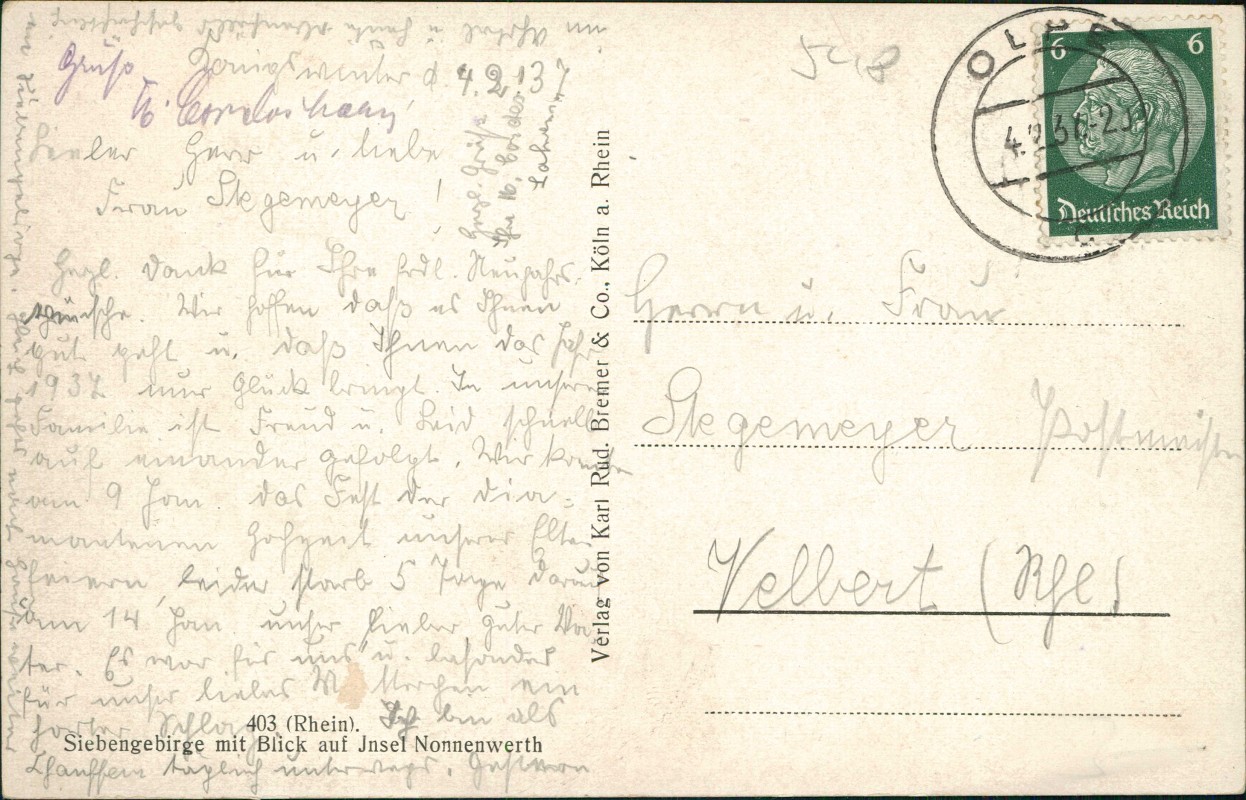 Grüße
Königswinter d. 4.2.37
Lieber Herr u. liebe
Frau Stegemeyer!
Herzl. Dank für Ihre frdl. Neujahrs-
wünsche. Wir hoffen daß es Ihnen
gut geht u. daß Ihnen das Jahr
1937 nur Glück bringt. In unserer
Familie ist Freud u. Leid schnell
auf einander gefolgt. Wir konnten
am 9 Jan. das Fest der dia-
mantenen Hochzeit unserer Eltern
feiern, leider starb 5 Tage darauf
am 14 Jan. unser lieber guter Va-
ter. Es war für uns u. besonders
für unser liebes Mütterchen ein
harter Schlag. Ich bin als
Chauffeur täglich unterwegs. Gestern
403 (Rhein).
Siebengebirge mit Blick auf Jnsel Nonnenwerth
Verlag von Karl Rud. Bremer & Co., Köln a. Rhein
OLPE
4.2.37
6 6
Deutsches Reich
Herrn u. Frau
Stegemeyer Postmeister
Velbert (Rhl)